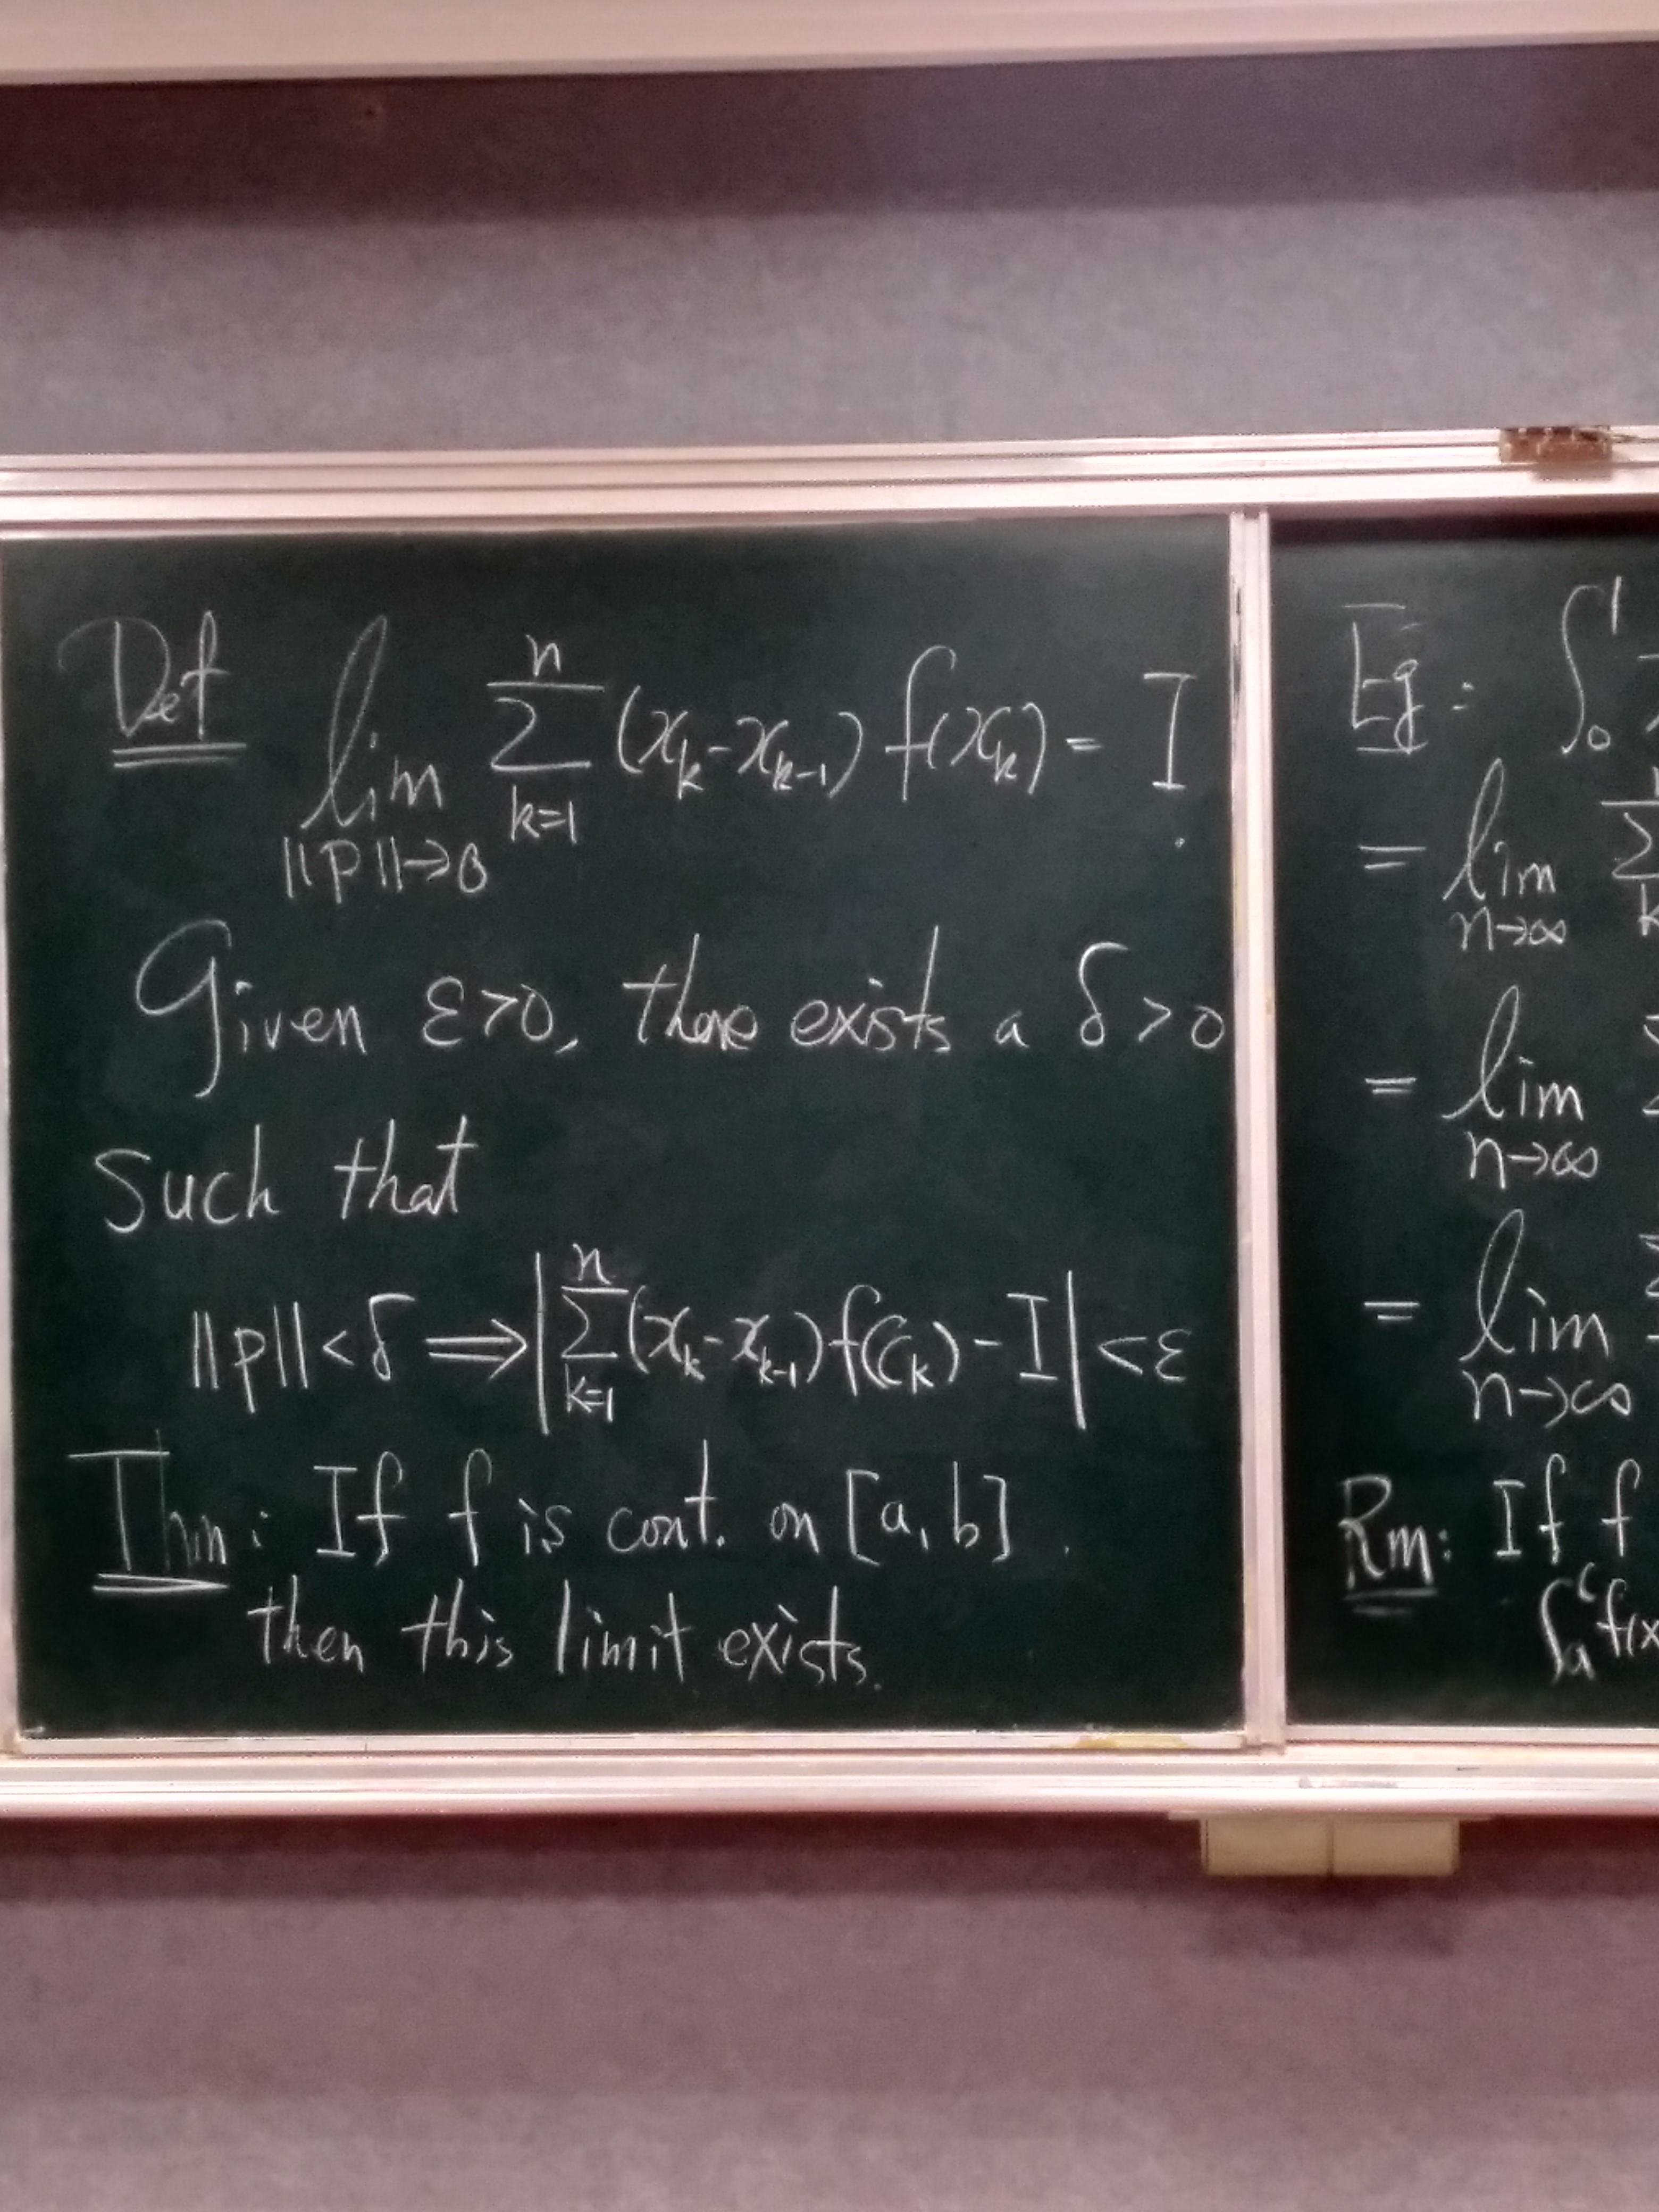 Def lim_{||p||→0} \sum_{k=1}^{n} (x_k - x_{k-1}) f(x_k) = I
Given ε>0, there exists a δ>0
Such that
||p||<δ ⟹ |\sum_{k=1}^{n} (x_k - x_{k-1}) f(c_k) - I| < ε
Thm: If f is cont. on [a, b].
then this limit exists.
Eg: ∫_0^1
= lim_{n→∞} Σ
= lim_{n→∞}
= lim_{n→∞}
Rm: If f
∫_a^c f(x